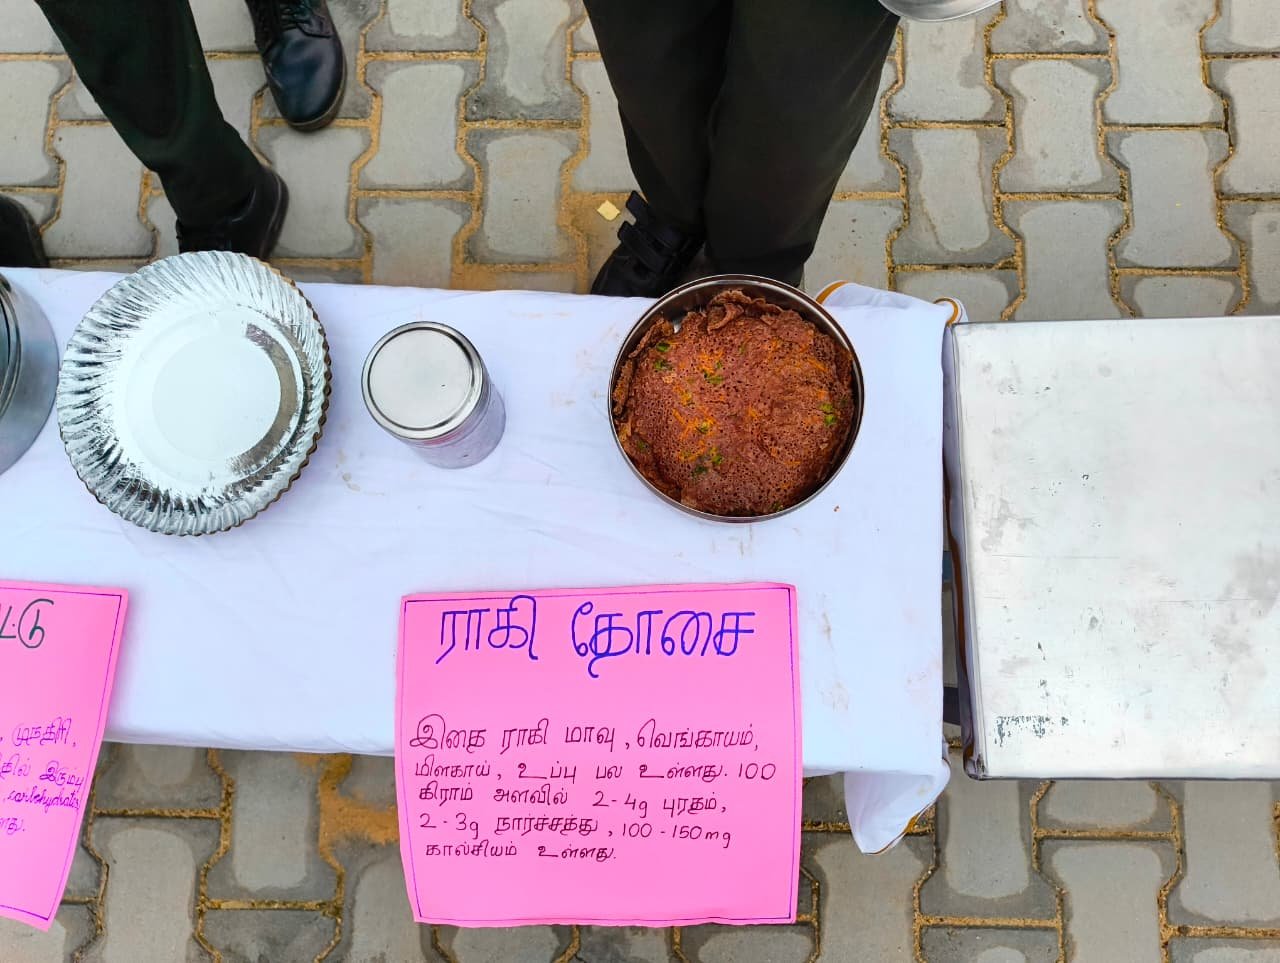 ராகி தோசை
இதை ராகி மாவு, வெங்காயம்,
மிளகாய், உப்பு பல உள்ளது. 100
கிராம் அளவில் 2-4g புரதம்,
2-3g நார்ச்சத்து, 100-150mg
கால்சியம் உள்ளது.
ட்டு
, முந்திரி,
தில் இரும்பு
, carbohydrates,
ளது.